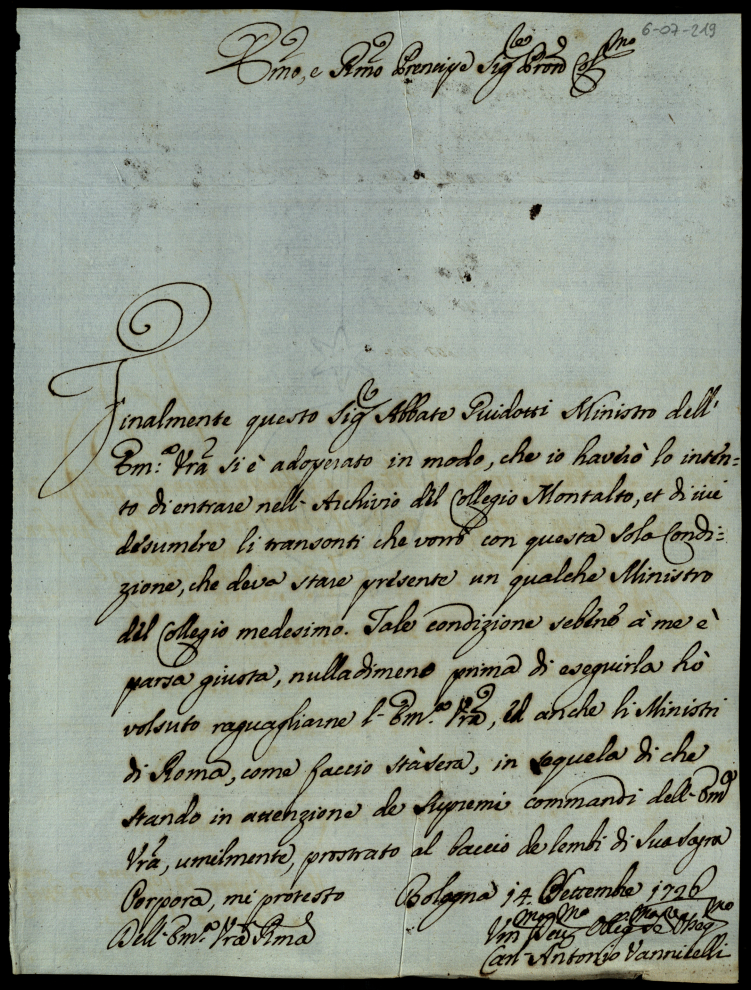 6-07-219
Emo, e Rmo Prencipe Sig.e Prond Colmo
Finalmente questo Sig.e Abbate Guidotti Ministro dell'
Em:a Vra si è adoperato in modo, che io haverò lo inten-
to di entrare nell' Archivio del Collegio Montalto, et di ivi
desumére li transonti che vorrò con questa sola Condi:
zione, che deva stare presente un qualche Ministro
del Collegio medesimo. Tale condizione sebene à me è
parsa giusta, nulladimeno prima di eseguirla hò
volsuto raguagliarne l' Em.a Vra, ed anche li Ministri
di Roma, come faccio stàsera, in sequela di che
stando in attenzione de supremi commandi dell' Ema
Vra, umilmente, prostrato al baccio de lembi di Sua Sagra
Porpora, mi protesto Bologna 14 Settembre 1726
Dell' Em.a Vra Rma
Can. Antonio Vannicelli